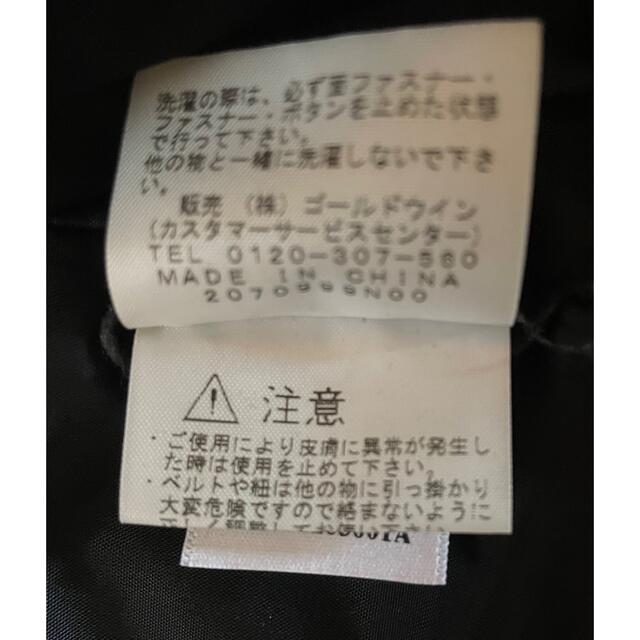 洗濯の際は、必ず面ファスナー・
ファスナー・ボタンを止めた状態
で行って下さい。
他の物と一緒に洗濯しないで下さ
い。
販売 (株) ゴールドウイン
(カスタマーサービスセンター)
TEL 0120-307-560
MADE IN CHINA
2070999N00
注意
・ご使用により皮膚に異常が発生し
た時は使用を止めて下さい。
・ベルトや紐は他の物に引っ掛かり
大変危険ですので絡まないように
正しく調整してお使い下さい。